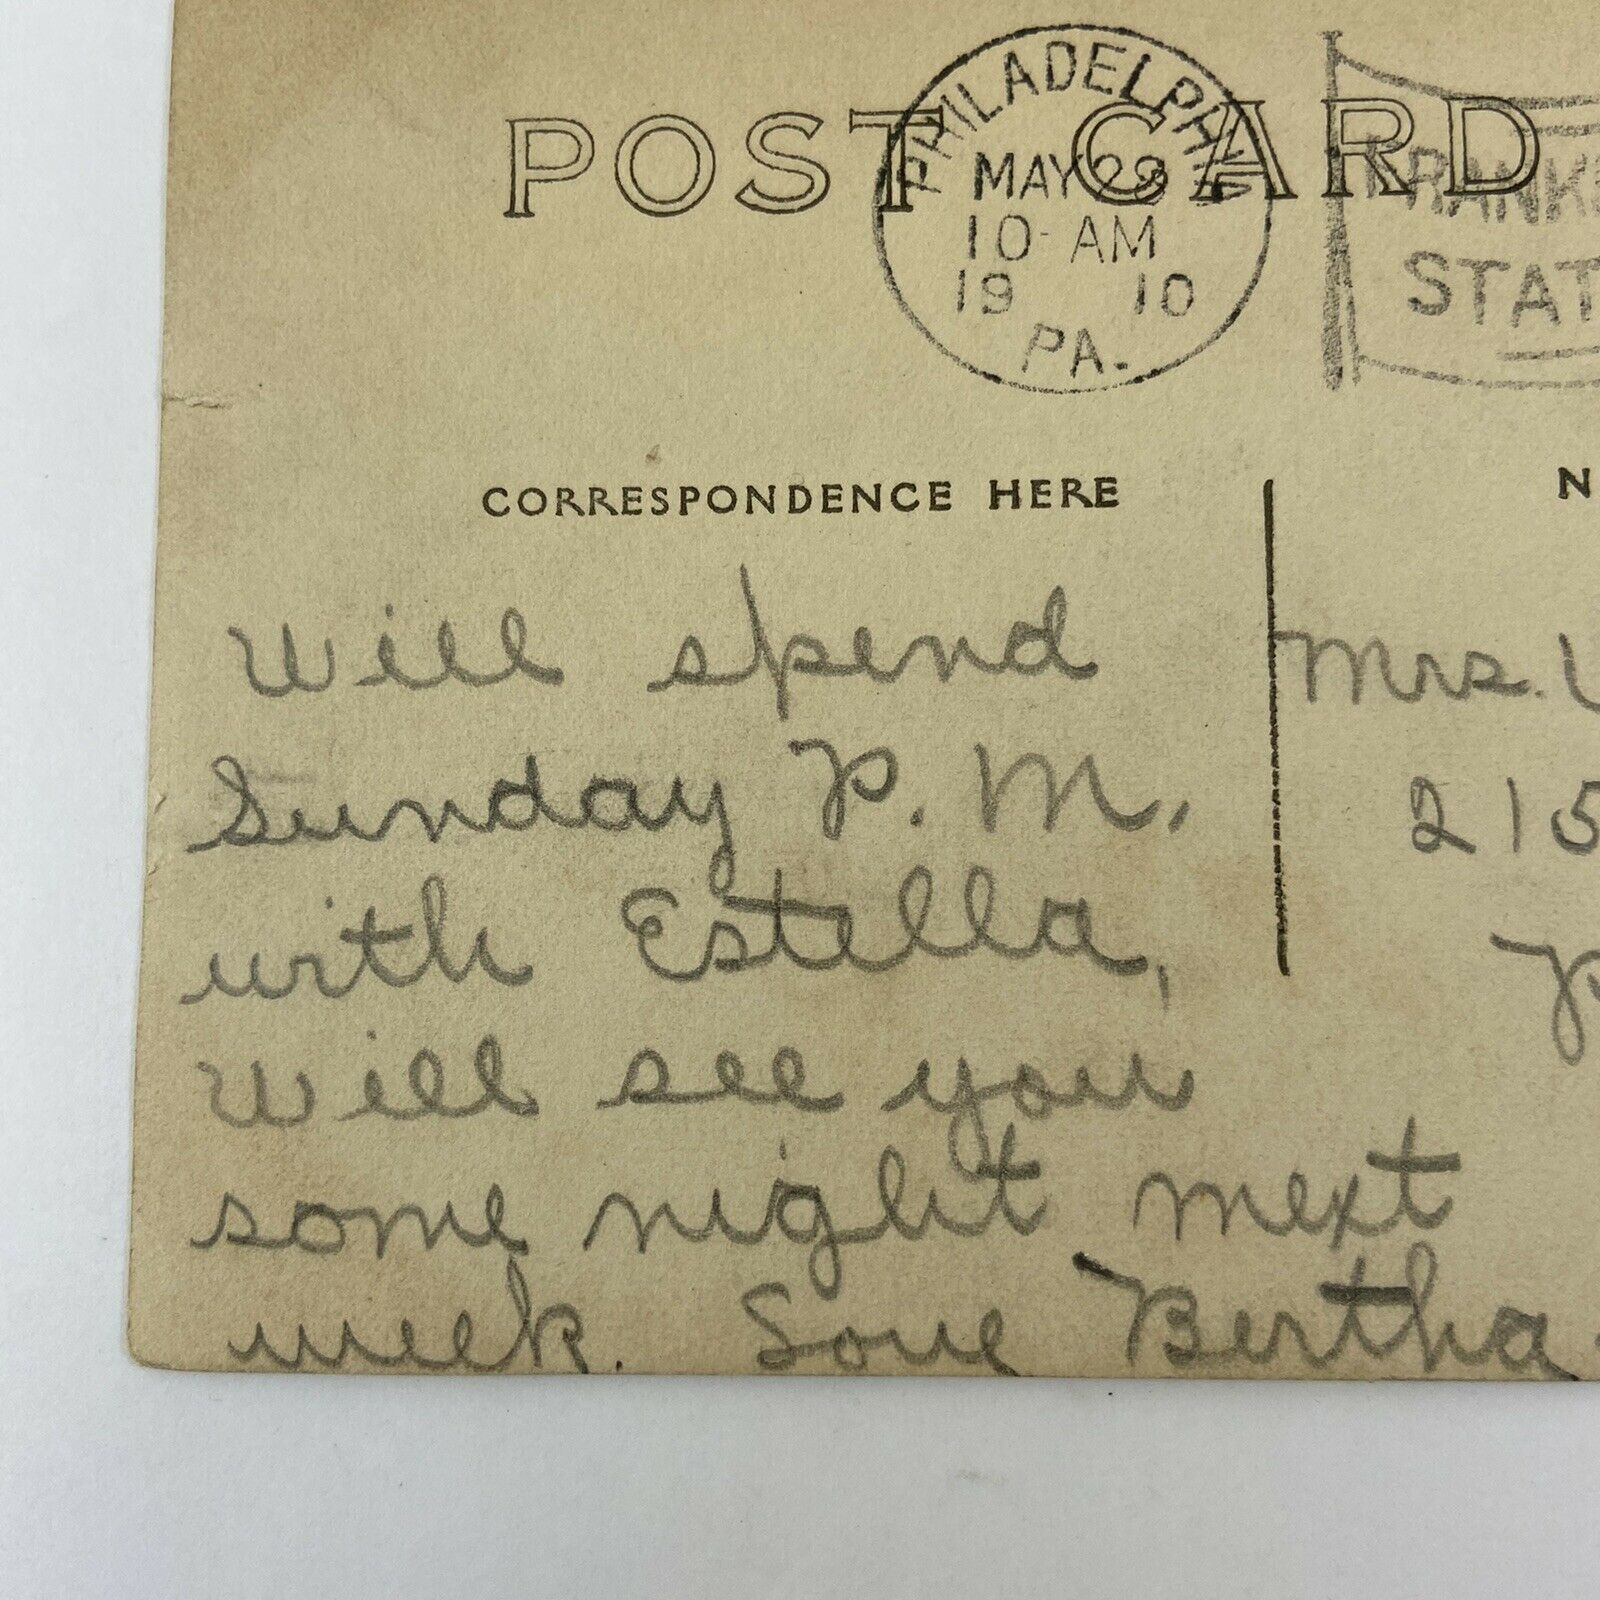 POST CARD
PHILADELPHIA
MAY 28
10 AM
19 10
PA.
STAT
CORRESPONDENCE HERE
N
Will spend
Sunday P. M.
with Estella,
Will see you
some night next
week. Love Bertha
Mrs.
215